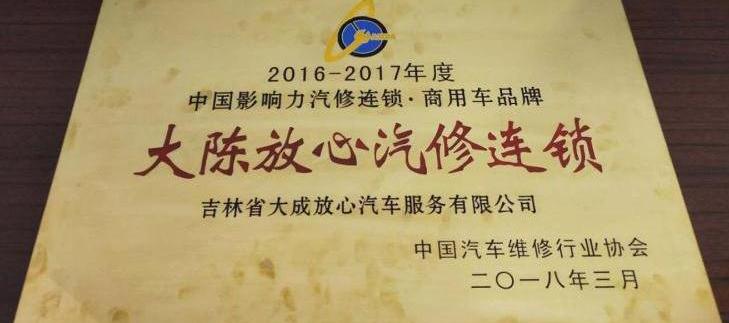 2016-2017年度
中国影响力汽修连锁·商用车品牌
大陈放心汽修连锁
吉林省大成放心汽车服务有限公司
中国汽车维修行业协会
二〇一八年三月